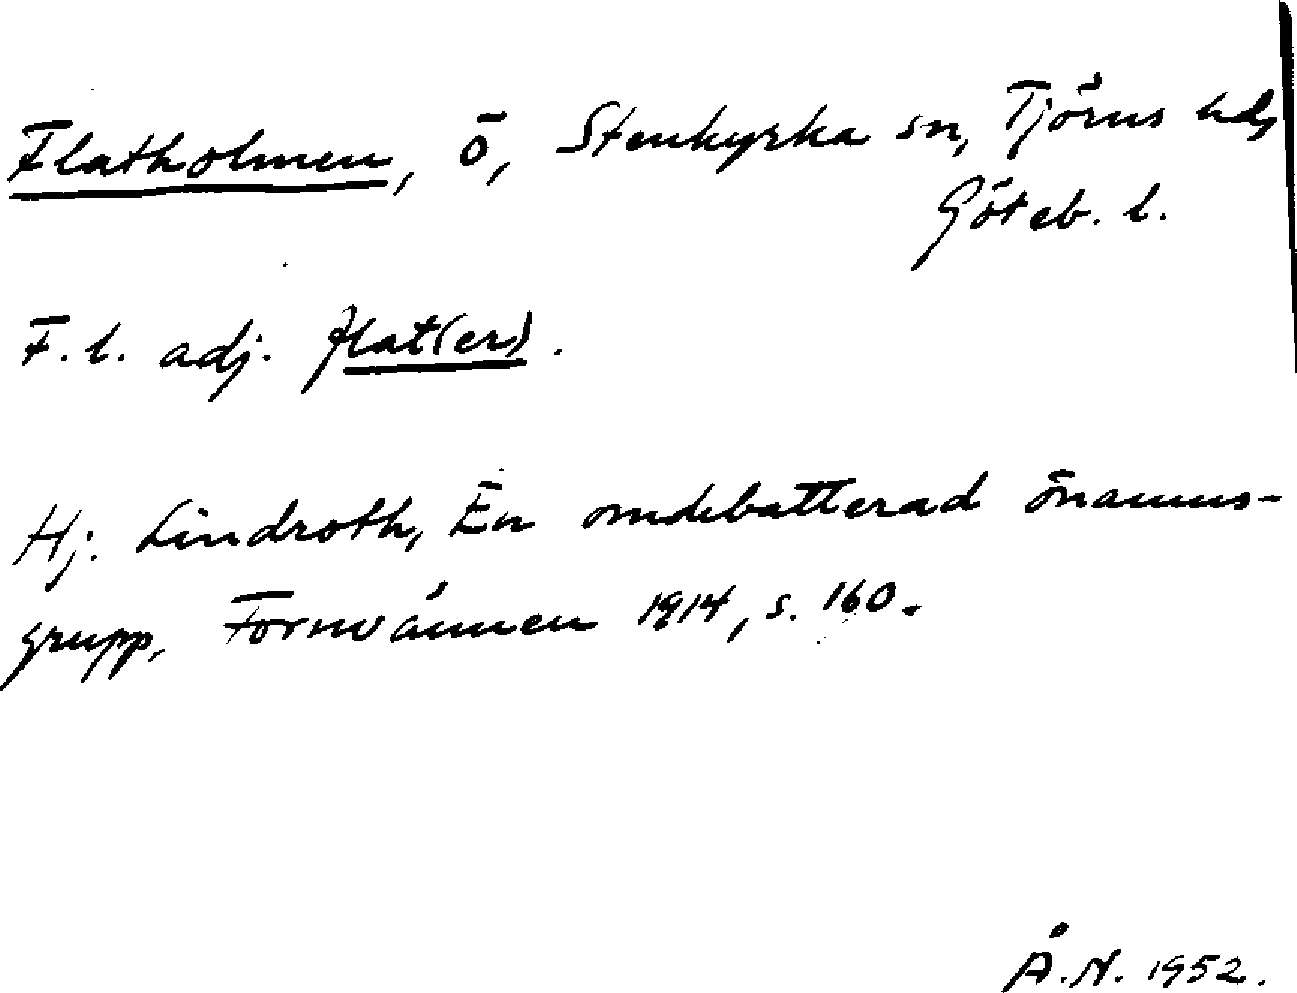 Flatholmen, ö, Stenkyrka sn, Tjörns hd,
Göteb. l.
F. l. adj. flat(er).
Hj. Lindroth, En omdebatterad önamns-
grupp, Fornvännen 1914, s. 160.
Å.N. 1952.